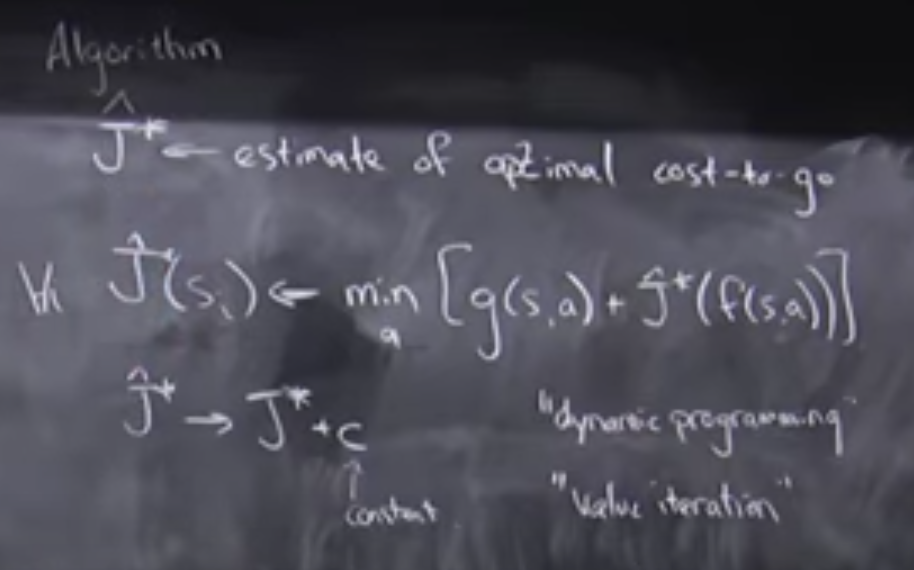 Algorithm
Ĵ* ← estimate of optimal cost-to-go
∀i Ĵ*(sᵢ) ← min_a [g(s,a) + Ĵ*(f(s,a))]
Ĵ* → J* + c
"dynamic programming"
↑
constant
"value iteration"